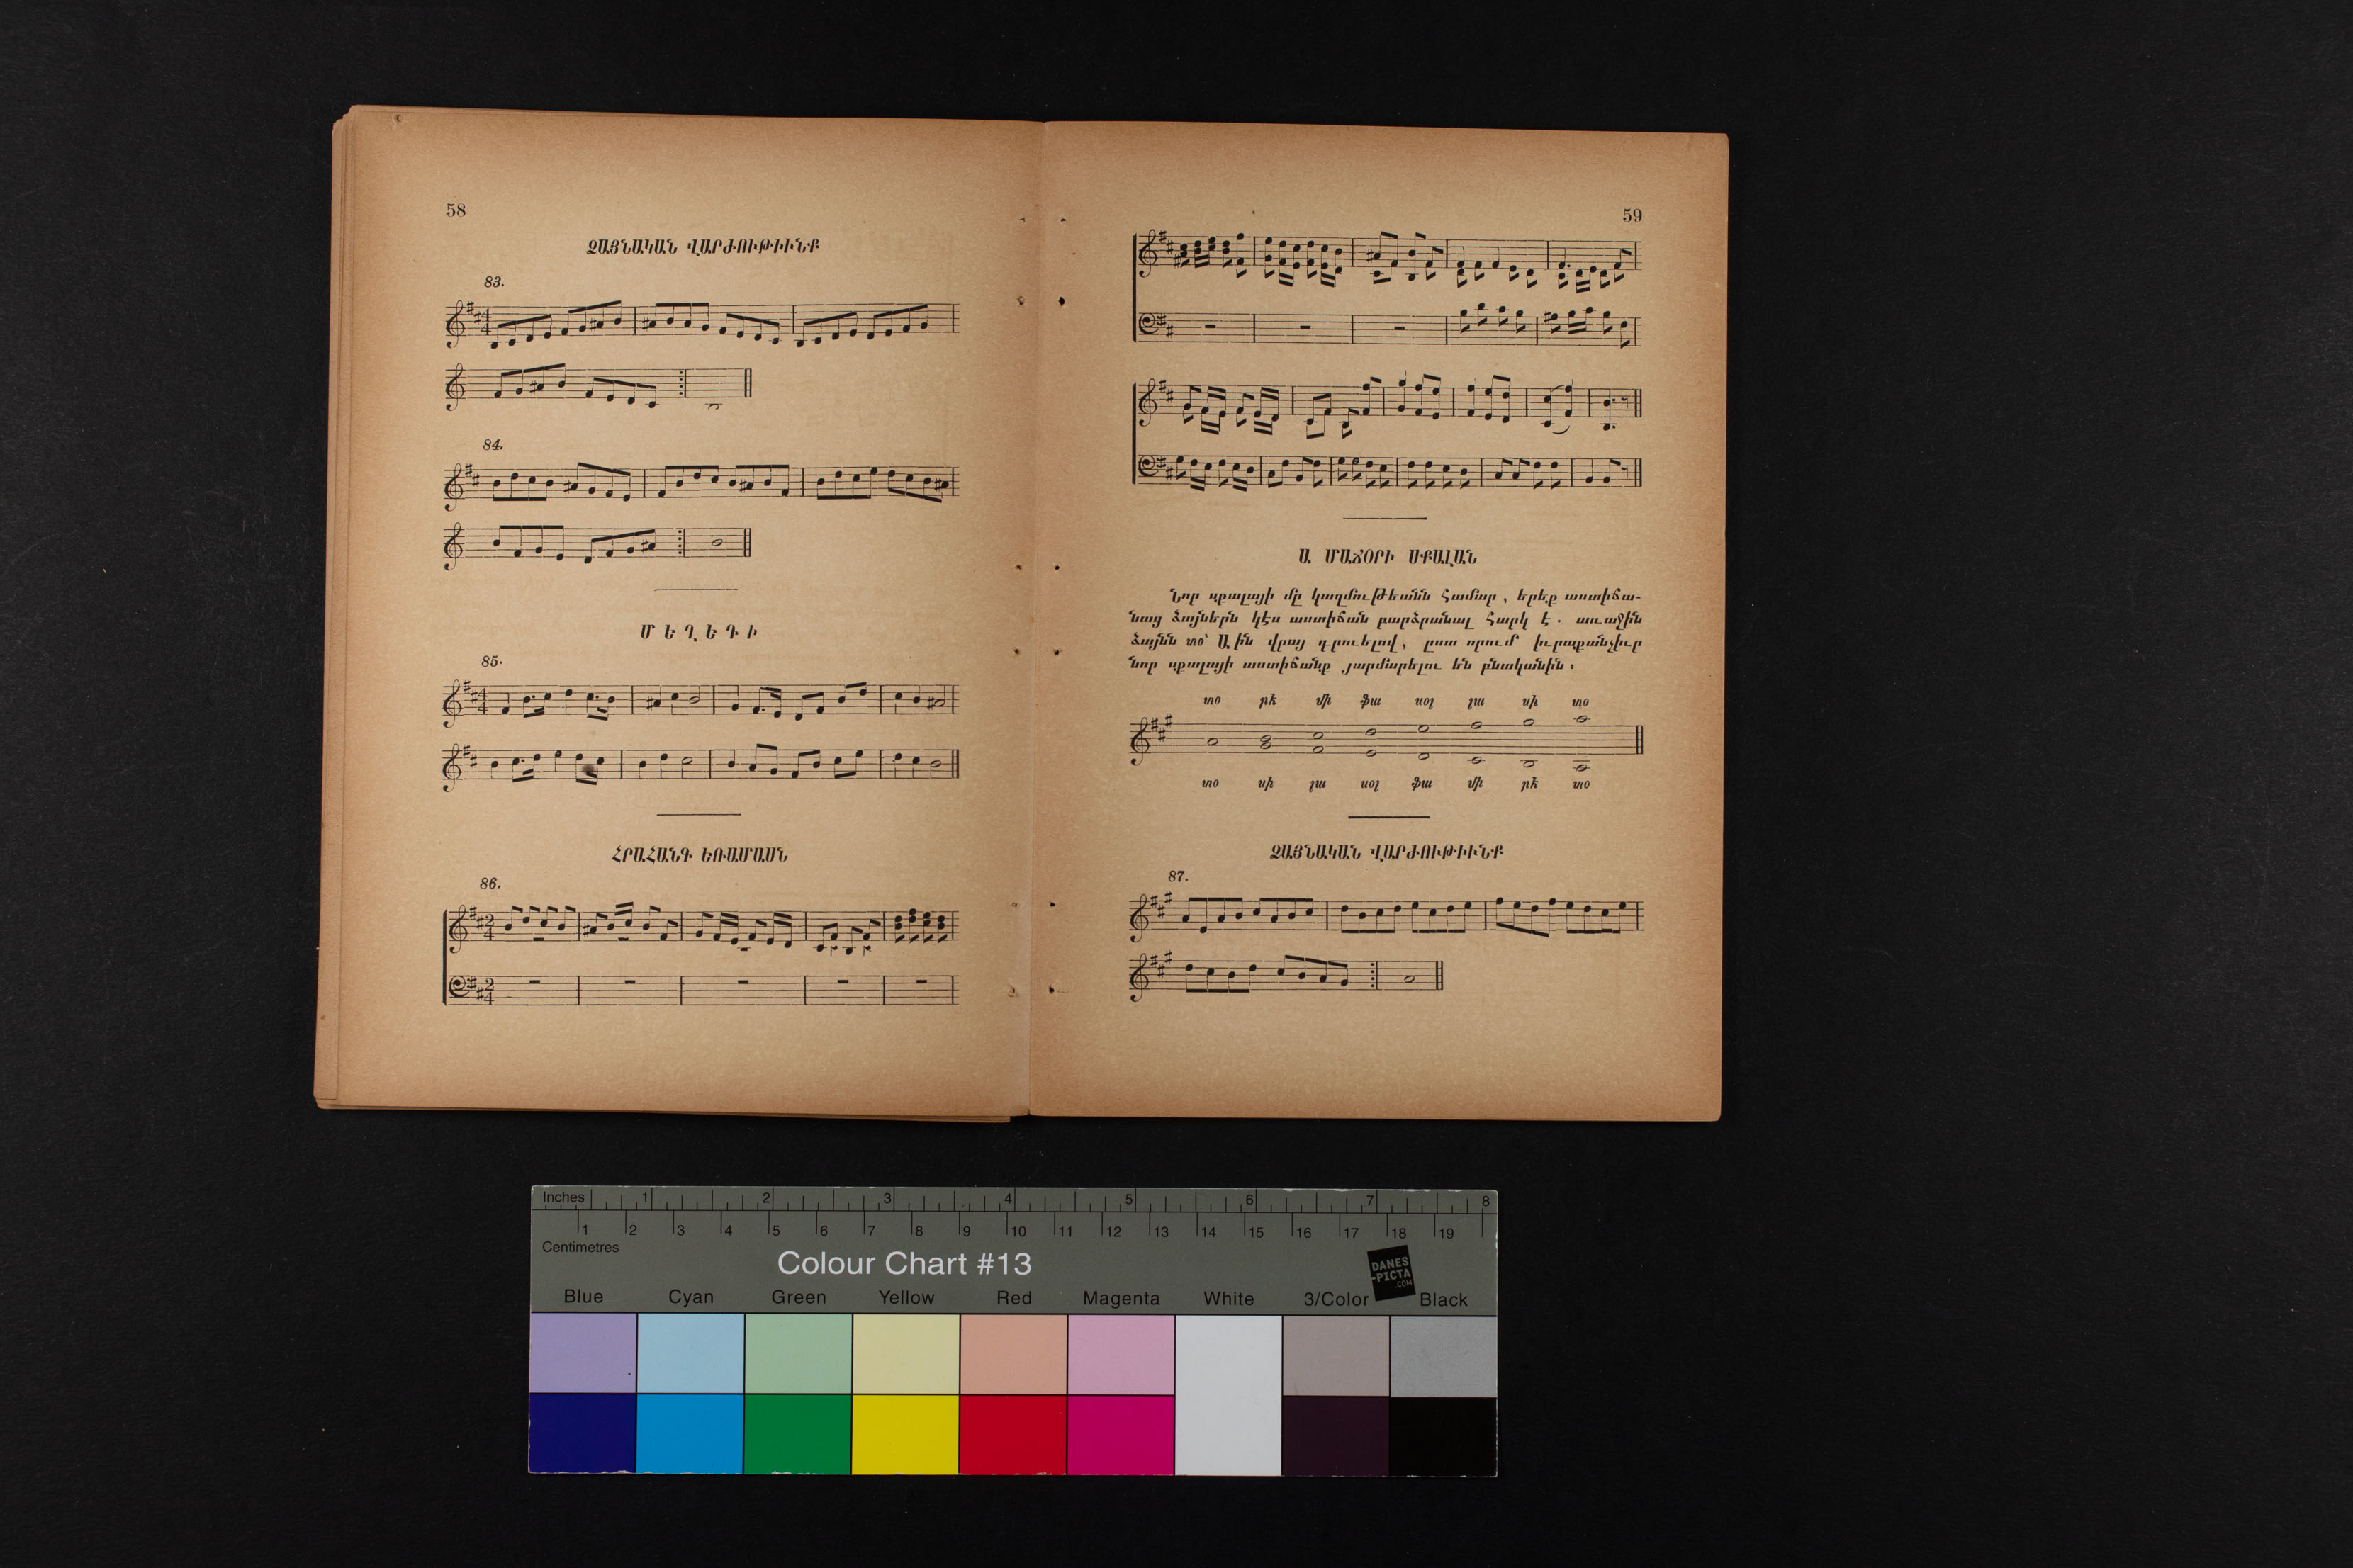 58
ՁԱՅՆԱԿԱՆ ՎԱՐԺՈՒԹԻՒՆՔ
83.
84.
ՄԵՂԵԴԻ
85.
ՀՐԱՀԱՆԳ ԵՌԱՄԱՍՆ
86.
59
Ա ՄԱՃՕՐԻ ՍՔԱԼԱՆ
Նոր սքալայի մը կազմութեանն համար, երեք աստիճա-
նաց ձայներն կէս աստիճան բարձրանալ հարկ է. առաջին
ձայնն տօ՝ Ա ին վրայ դրուելով, ըստ որում իւրաքանչիւր
նոր սքալայի աստիճանք յարմարելու են բնականին:
տօ րէ մի ֆա սօլ լա սի տօ
տօ սի լա սօլ ֆա մի րէ տօ
ՁԱՅՆԱԿԱՆ ՎԱՐԺՈՒԹԻՒՆՔ
87.
Inches 1 2 3 4 5 6 7 8
1 2 3 4 5 6 7 8 9 10 11 12 13 14 15 16 17 18 19
Centimetres
Colour Chart #13
DANES
-PICTA
.COM
Blue Cyan Green Yellow Red Magenta White 3/Color Black